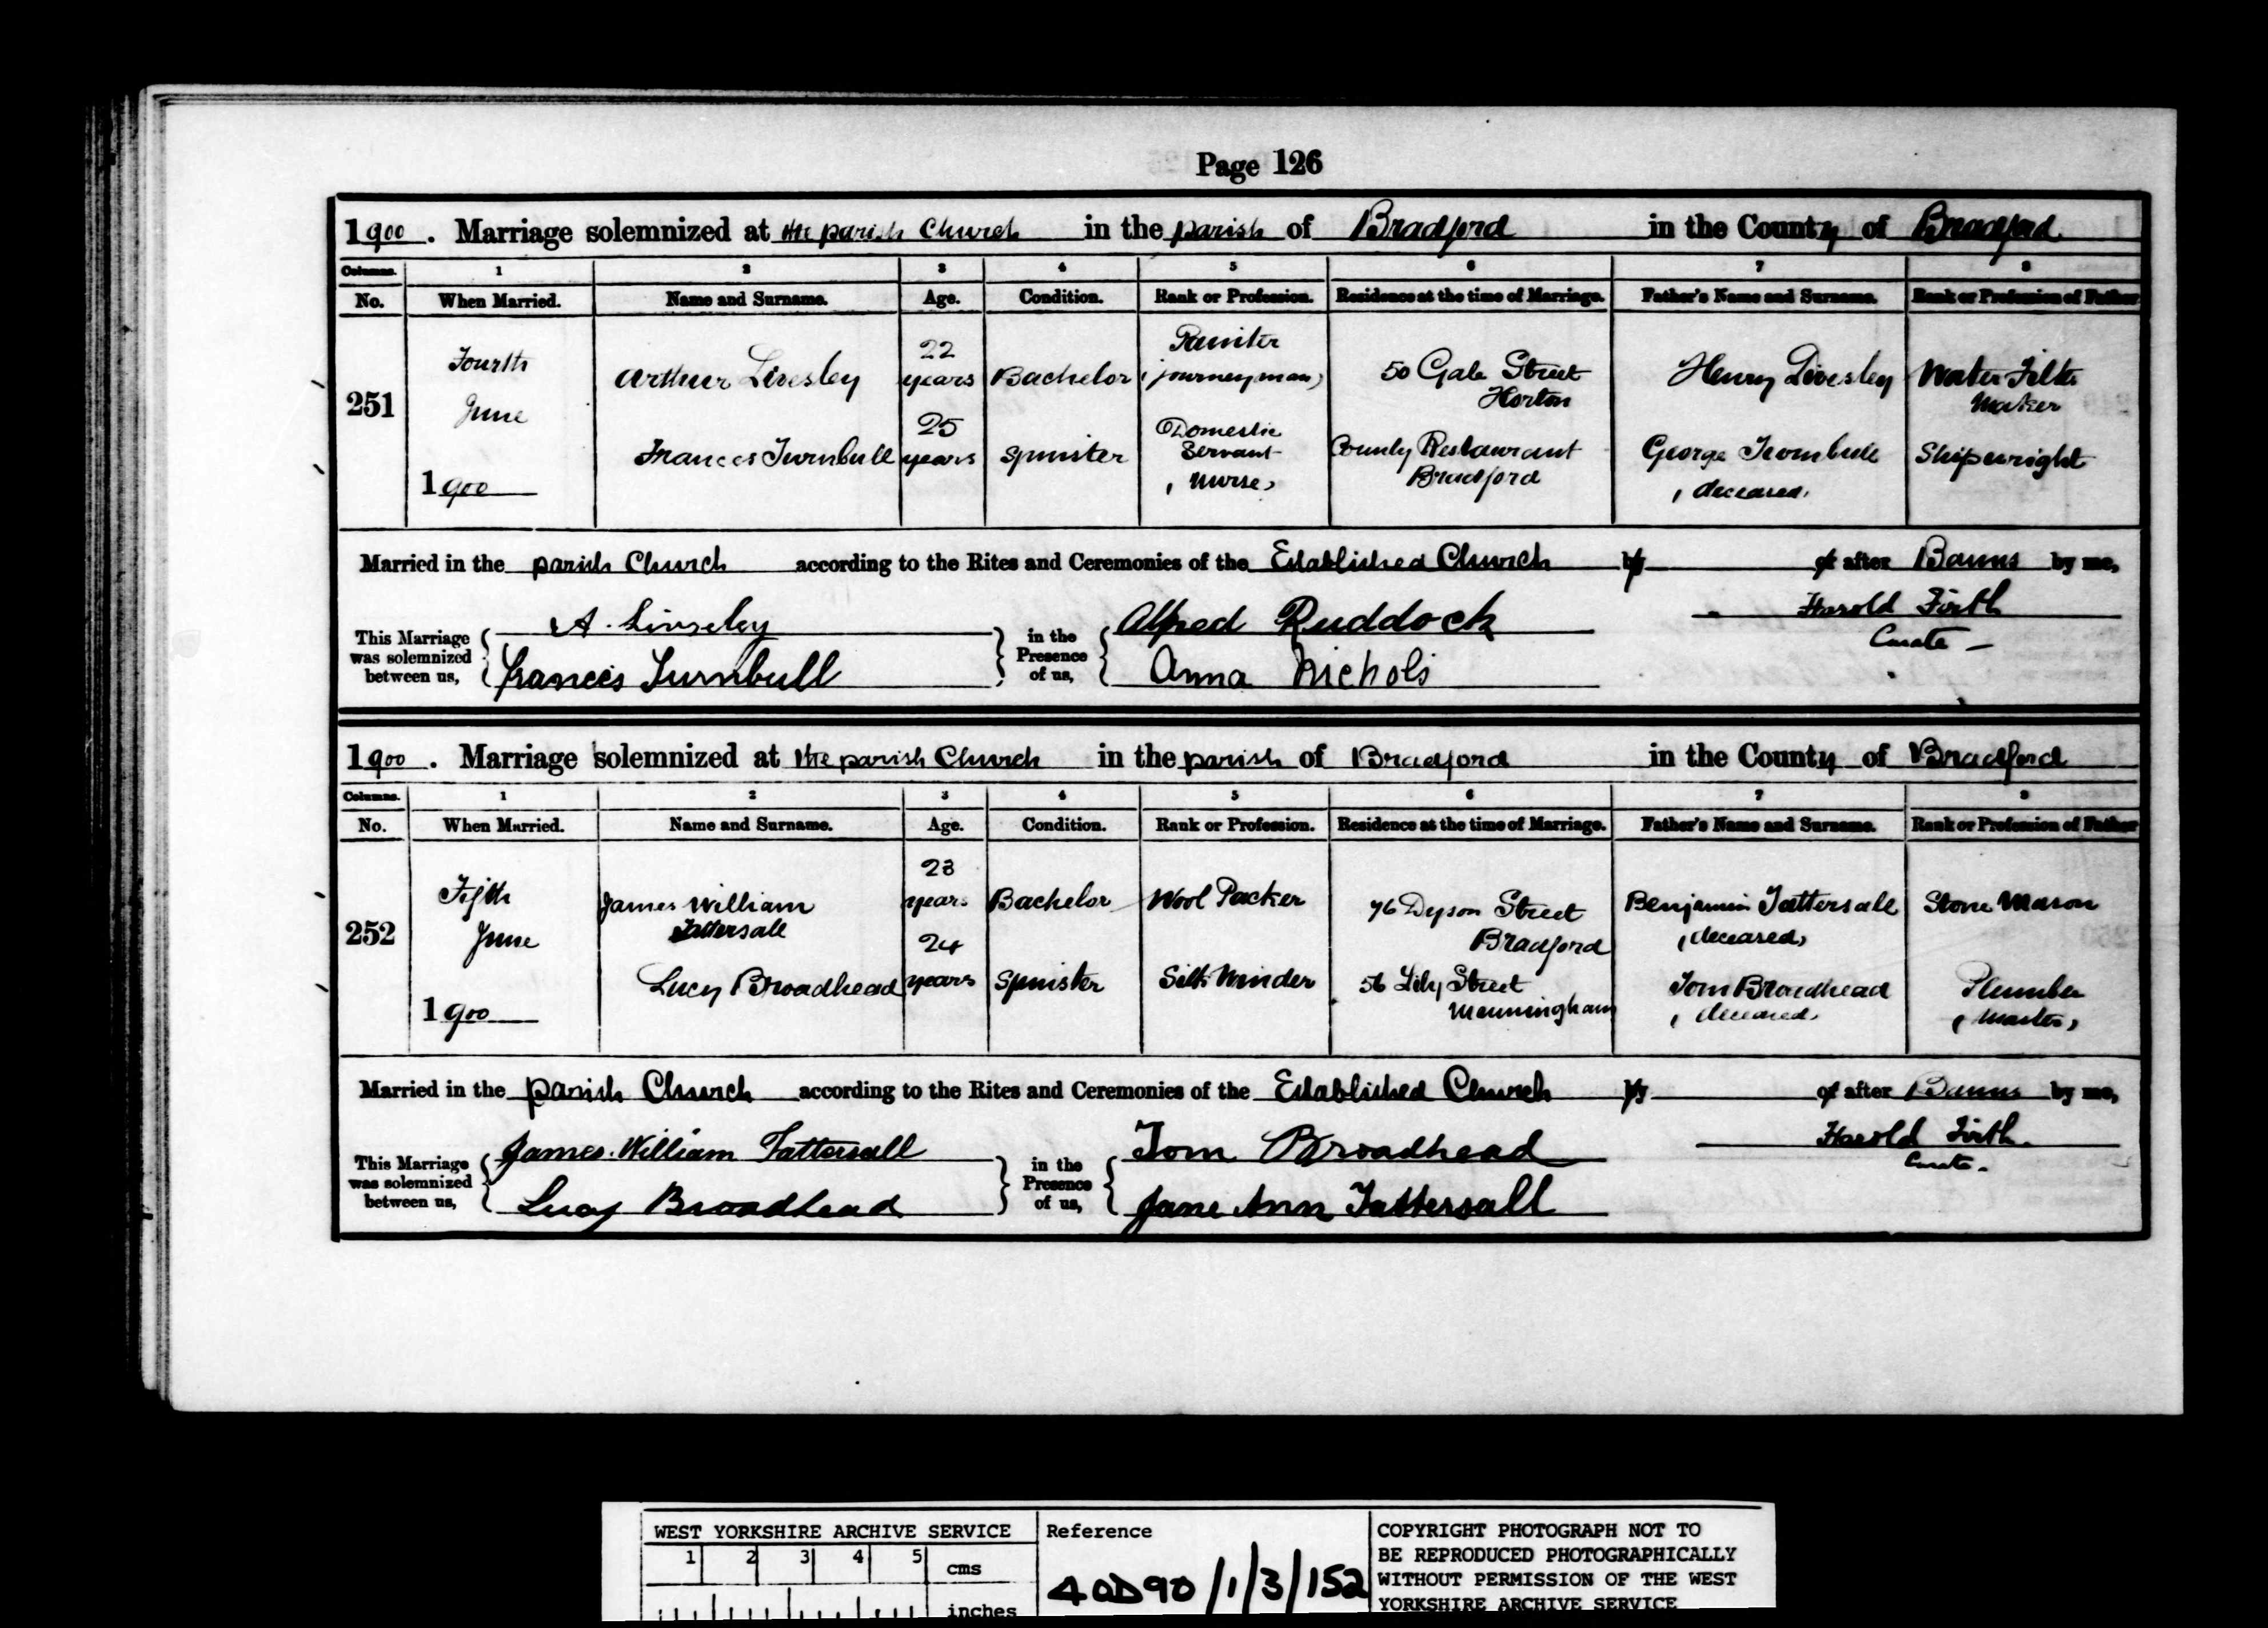 Page 126
1900. Marriage solemnized at the parish Church in the parish of Bradford in the County of Bradford
Columns. 1 2 3 4 5 6 7 8
No. When Married. Name and Surname. Age. Condition. Rank or Profession. Residence at the time of Marriage. Father's Name and Surname. Rank or Profession of Father
251 Fourth June 1900
Arthur Livesley 22 years Bachelor Painter (journeyman) 50 Gale Street Horton Henry Livesley Water Filter Maker
Frances Turnbull 25 years Spinster Domestic Servant (Nurse) County Restaurant Bradford George Turnbull (deceased) Shipwright
Married in the parish Church according to the Rites and Ceremonies of the Established Church by or after Banns by me,
Harold Firth
Curate
This Marriage was solemnized between us,
A. Livseley
Frances Turnbull
in the Presence of us,
Alfred Ruddock
Anna Nichols
1900. Marriage solemnized at the parish Church in the parish of Bradford in the County of Bradford
Columns. 1 2 3 4 5 6 7 8
No. When Married. Name and Surname. Age. Condition. Rank or Profession. Residence at the time of Marriage. Father's Name and Surname. Rank or Profession of Father
252 Fifth June 1900
James William Tattersall 23 years Bachelor Wool Packer 76 Dyson Street Bradford Benjamin Tattersall (deceased) Stone Mason
Lucy Broadhead 24 years Spinster Silk Winder 56 Lily Street Manningham Tom Broadhead (deceased) Plumber (Master)
Married in the parish Church according to the Rites and Ceremonies of the Established Church by or after Banns by me,
Harold Firth.
Curate.
This Marriage was solemnized between us,
James William Tattersall
Lucy Broadhead
in the Presence of us,
Tom Broadhead
Jane Ann Tattersall
WEST YORKSHIRE ARCHIVE SERVICE
1 2 3 4 5 cms
inches
Reference
40D90/1/3/152
COPYRIGHT PHOTOGRAPH NOT TO
BE REPRODUCED PHOTOGRAPHICALLY
WITHOUT PERMISSION OF THE WEST
YORKSHIRE ARCHIVE SERVICE